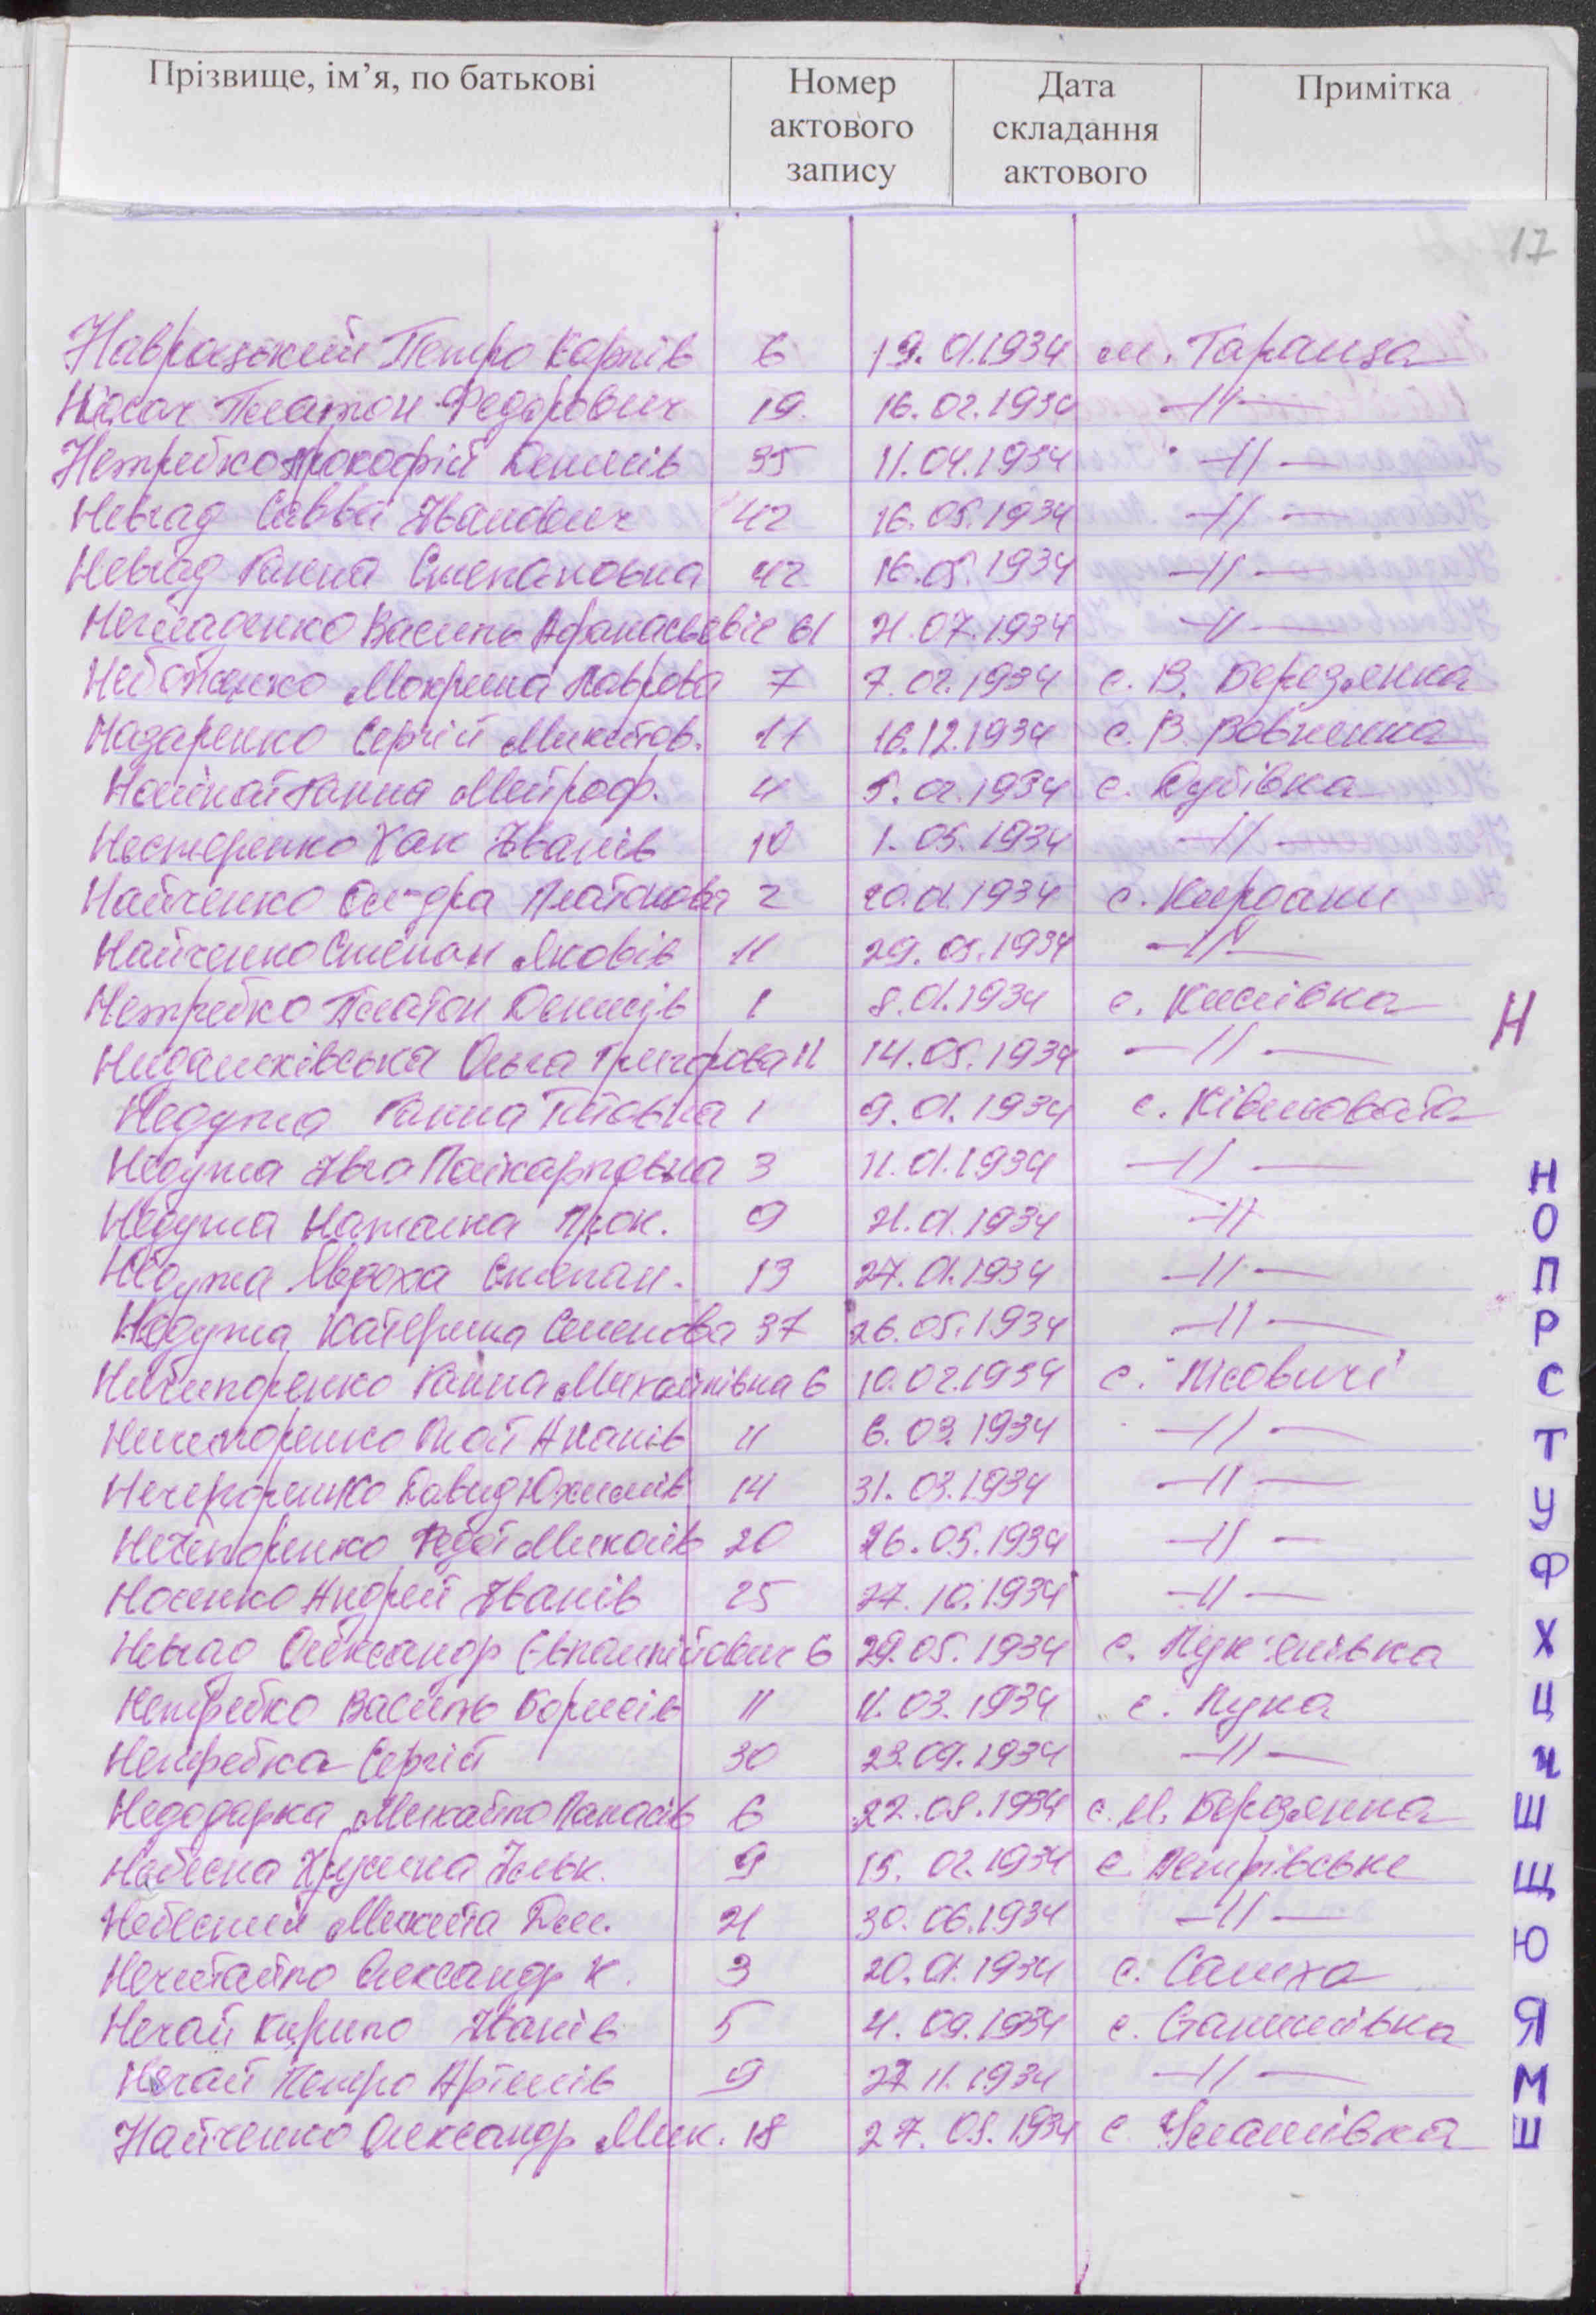 Прізвище, ім’я, по батькові Номер актового запису Дата складання актового Примітка
17
Навроцький Петро Карпів 6 19.01.1934 м. Тараща
Носач Платон Федорович 19 16.02.1934 -//-
Нетребко Прокофій Денисів 35 11.04.1934 -//-
Невгад Савва Іванович 42 16.05.1934 -//-
Невгад Ганна Степановна 42 16.05.1934 -//-
Василь Афанасьєвіч 61 21.07.1934 -//-
Мокрина Лаврова 7 7.02.1934 с. В. Березянка
Назаренко Сергій Микитов. 11 16.12.1934 с. В. Вовнянка
Ганна Митроф. 4 5.02.1934 с. Дубівка
Нестеренко Хак Іванів 10 1.05.1934 -//-
Найченко Ол-дра Платонова 2 20.01.1934 с. Кирдани
Найченко Степан Яковів 11 29.05.1934 -//-
Нетребко Платон Денисів 1 8.01.1934 с. Кислівка
Ольга Григорова 11 14.05.1934 -//-
Недужа Ганна Титовна 1 9.01.1934 с. Ківшовата
Недужа Івга Полікарповна 3 11.01.1934 -//-
Недужа Наталка Прок. 9 21.01.1934 -//-
Недужа Явдоха Степан. 13 27.01.1934 -//-
Недужа Катерина Семенова 37 26.05.1934 -//-
Ничипоренко Ганна Михайлівна 6 10.02.1934 с. Лісовичі
11 6.03.1934 -//-
Нечепоренко Давид Юхимів 14 31.03.1934 -//-
Нечіпоренко Федот Миколів 20 26.05.1934 -//-
Носенко Андрей Іванів 25 27.10.1934 -//-
Невгад Олександр Євлампійович 6 29.05.1934 с. Лук'янівка
Нетребко Василь Борисів 11 11.03.1934 с. Лука
Нетребка Сергій 30 23.09.1934 -//-
Недодарка Михайло Панасів 6 22.08.1934 с. М. Березянка
Небесна Ільк. 9 15.02.1934 с. Петрівське
Небесний Микита Дем. 21 30.06.1934 -//-
Нечитайло Олександр К. 3 20.01.1934 с. Салиха
Нечай Кирило Іванів 5 4.09.1934 с. Станишівка
Нечай Петро Артемів 9 27.11.1934 -//-
Найченко Олександр Мик. 18 27.08.1934 с. Улашівка
Н
Н
О
П
Р
С
Т
У
Ф
Х
Ц
Ч
Ш
Щ
Ю
Я
М
Ш